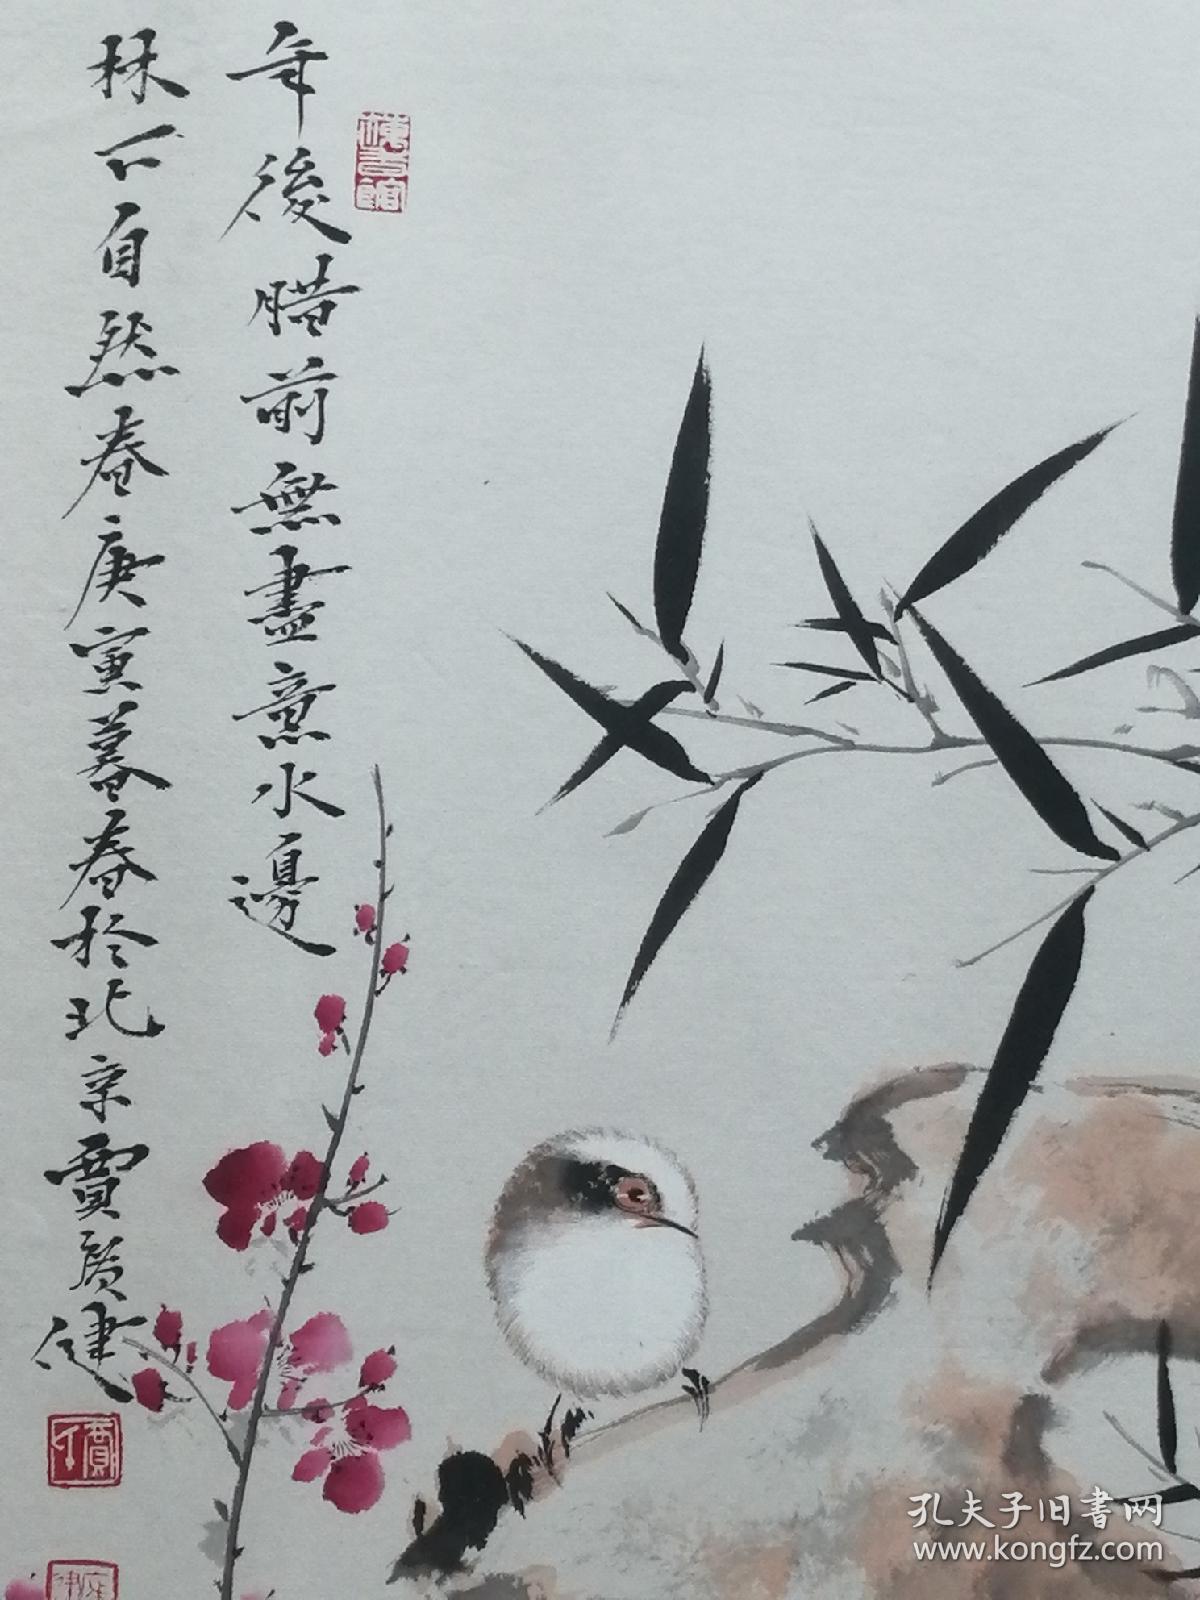 年後腊前無盡意水邊
林下自然春庚寅暮春於北京賈廣健
孔夫子旧書网
www.kongfz.com